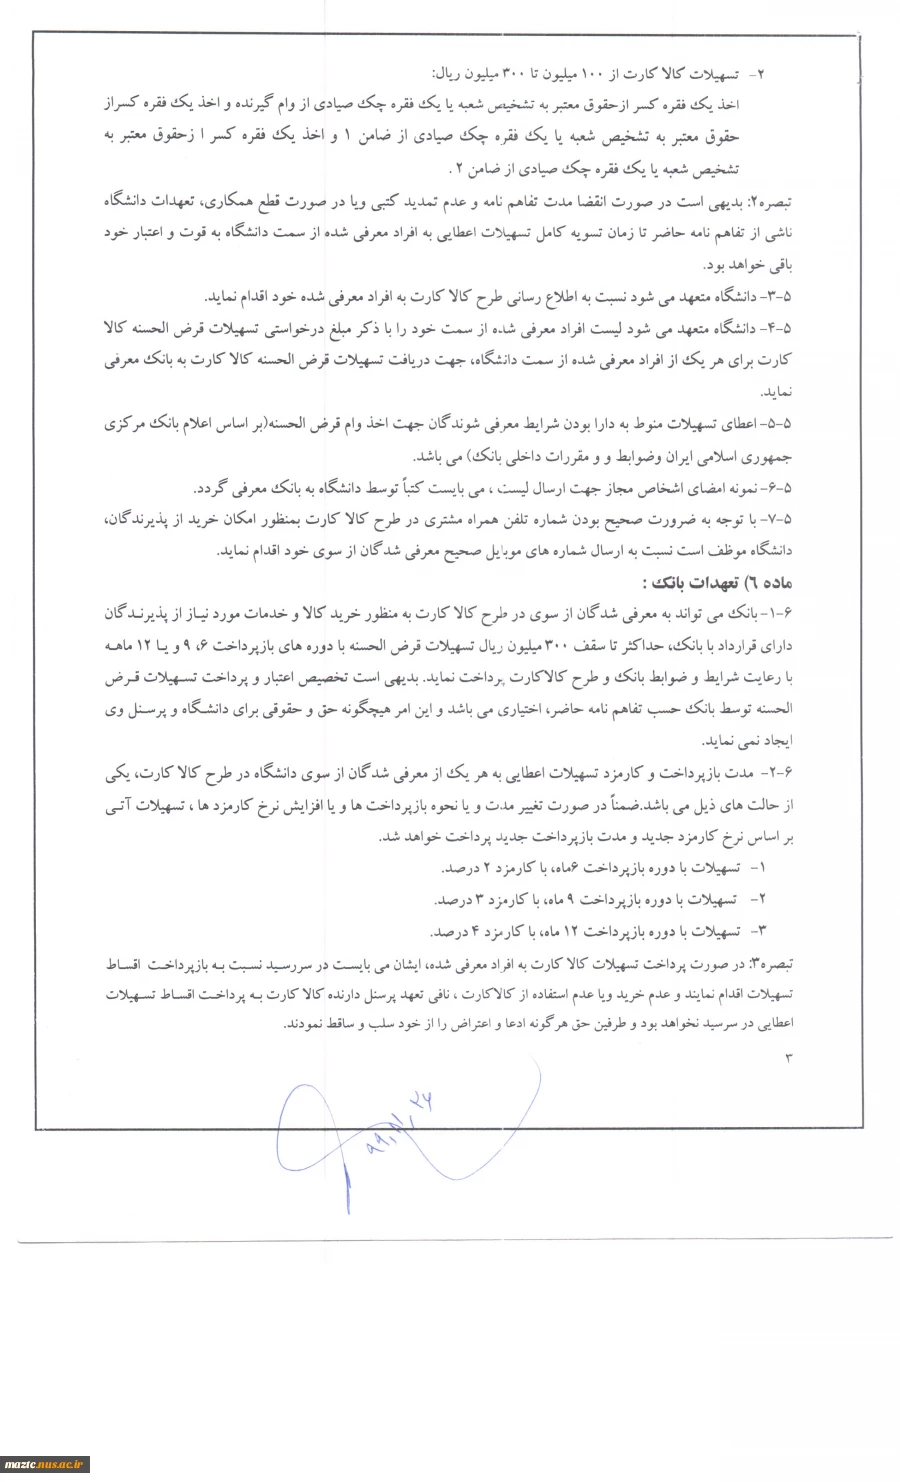 ۲- تسهیلات کالا کارت از ۱۰۰ میلیون تا ۳۰۰ میلیون ریال:
اخذ یک فقره کسر ازحقوق معتبر به تشخیص شعبه یا یک فقره چک صیادی از وام گیرنده و اخذ یک فقره کسراز
حقوق معتبر به تشخیص شعبه یا یک فقره چک صیادی از ضامن ۱ و اخذ یک فقره کسر ا زحقوق معتبر به
تشخیص شعبه یا یک فقره چک صیادی از ضامن ۲ .
تبصره۲: بدیهی است در صورت انقضا مدت تفاهم نامه و عدم تمدید کتبی ویا در صورت قطع همکاری، تعهدات دانشگاه
ناشی از تفاهم نامه حاضر تا زمان تسویه کامل تسهیلات اعطایی به افراد معرفی شده از سمت دانشگاه به قوت و اعتبار خود
باقی خواهد بود.
۵-۳- دانشگاه متعهد می شود نسبت به اطلاع رسانی طرح کالا کارت به افراد معرفی شده خود اقدام نماید.
۵-۴- دانشگاه متعهد می شود لیست افراد معرفی شده از سمت خود را با ذکر مبلغ درخواستی تسهیلات قرض الحسنه کالا
کارت برای هر یک از افراد معرفی شده از سمت دانشگاه، جهت دریافت تسهیلات قرض الحسنه کالا کارت به بانک معرفی
نماید.
۵-۵- اعطای تسهیلات منوط به دارا بودن شرایط معرفی شوندگان جهت اخذ وام قرض الحسنه(بر اساس اعلام بانک مرکزی
جمهوری اسلامی ایران وضوابط و و مقررات داخلی بانک) می باشد.
۵-۶- نمونه امضای اشخاص مجاز جهت ارسال لیست ، می بایست کتباً توسط دانشگاه به بانک معرفی گردد.
۵-۷- با توجه به ضرورت صحیح بودن شماره تلفن همراه مشتری در طرح کالا کارت بمنظور امکان خرید از پذیرندگان،
دانشگاه موظف است نسبت به ارسال شماره های موبایل صحیح معرفی شدگان از سوی خود اقدام نماید.
ماده ۶) تعهدات بانک :
۶-۱- بانک می تواند به معرفی شدگان از سوی در طرح کالا کارت به منظور خرید کالا و خدمات مورد نیاز از پذیرندگان
دارای قرارداد با بانک، حداکثر تا سقف ۳۰۰ میلیون ریال تسهیلات قرض الحسنه با دوره های بازپرداخت ۶، ۹ و یا ۱۲ ماهه
با رعایت شرایط و ضوابط بانک و طرح کالاکارت پرداخت نماید. بدیهی است تخصیص اعتبار و پرداخت تسهیلات قرض
الحسنه توسط بانک حسب تفاهم نامه حاضر، اختیاری می باشد و این امر هیچگونه حق و حقوقی برای دانشگاه و پرسنل وی
ایجاد نمی نماید.
۶-۲- مدت بازپرداخت و کارمزد تسهیلات اعطایی به هر یک از معرفی شدگان از سوی دانشگاه در طرح کالا کارت، یکی
از حالت های ذیل می باشد.ضمناً در صورت تغییر مدت و یا نحوه بازپرداخت ها و یا افزایش نرخ کارمزد ها ، تسهیلات آتی
بر اساس نرخ کارمزد جدید و مدت بازپرداخت جدید پرداخت خواهد شد.
۱- تسهیلات با دوره بازپرداخت ۶ماه، با کارمزد ۲ درصد.
۲- تسهیلات با دوره بازپرداخت ۹ ماه، با کارمزد ۳ درصد.
۳- تسهیلات با دوره بازپرداخت ۱۲ ماه، با کارمزد ۴ درصد.
تبصره۳: در صورت پرداخت تسهیلات کالا کارت به افراد معرفی شده، ایشان می بایست در سررسید نسبت به بازپرداخت اقساط
تسهیلات اقدام نمایند و عدم خرید ویا عدم استفاده از کالاکارت ، نافی تعهد پرسنل دارنده کالا کارت به پرداخت اقساط تسهیلات
اعطایی در سرسید نخواهد بود و طرفین حق هرگونه ادعا و اعتراض را از خود سلب و ساقط نمودند.
۳
maztc.nus.ac.ir